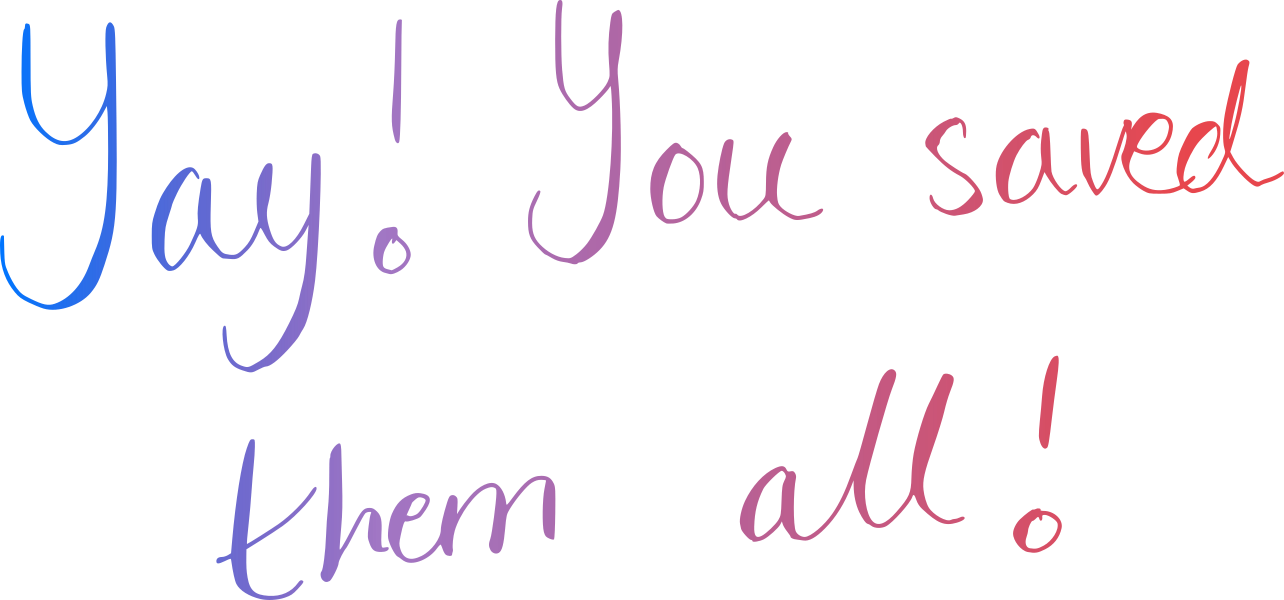 Yay! You saved
them all!